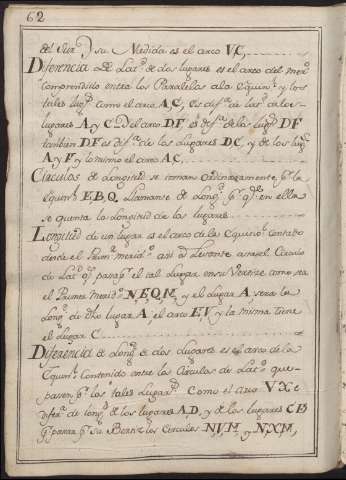 62
del Sur) su Medida es el arco V,C,
Diferencia de Lat.d de dos lugares es el arco del mer.no
comprendido entre los Paralelos a la Equin.l y los
tales lug.s como el arco A,C, es dif.a de lat.d de los
lugares A y C. el arco D,F, es dif.a de los lug.s D F
tambien D F es dif.a de los Lugares D C, y de los lug.s
A y F y lo mismo el arco A C,
Circulos de Longitud se toman Ordinariamente p.r la
Equin.l E,B,Q. Llamanse de Long.d p.r q.e en ella
se quenta la Longitud de los lugares
Longitud de un lugar es el arco de la Equino.l contado
desde el Prim.r merid.o asia el Levante asta el Circulo
de Lat.d q.e pasa p.r el tal Lugar, en su Vertize como sea
el Primer merid.o N,E,Q,M, y el lugar A, sera la
Long.d de dho lugar A, el arco E,V, y la misma tiene
el lugar C
Diferencia de Long.d de dos Lugares es el arco de la
Equin.l Contenido entre los Circulos de Lat.d que
pasen p.r los tales Lugar.s Como el arco V X es
difer.a de long.d de los lugares A,D, y de los lugares C B
p.r pasar p.r su Bertize los Circulos N,V,M, y N,X,M,